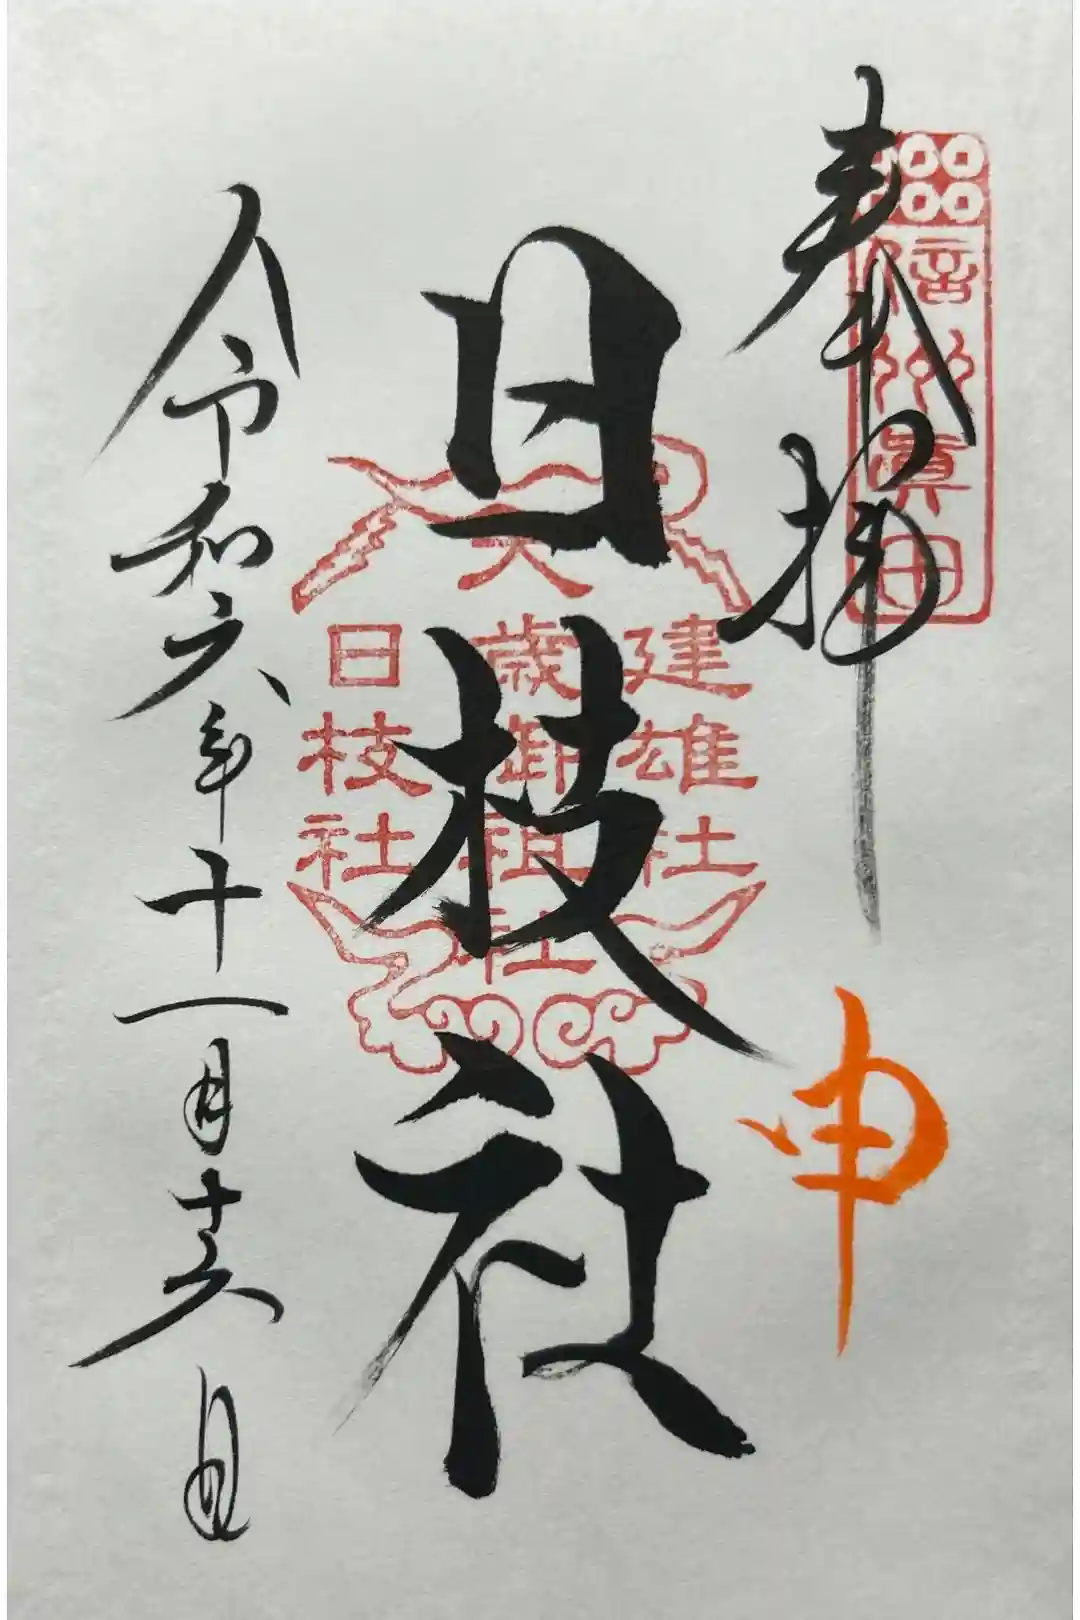 奉拝
信州眞田
申
日枝社
建雄社
大歳御祖社
日枝社
令和六年十一月十六日